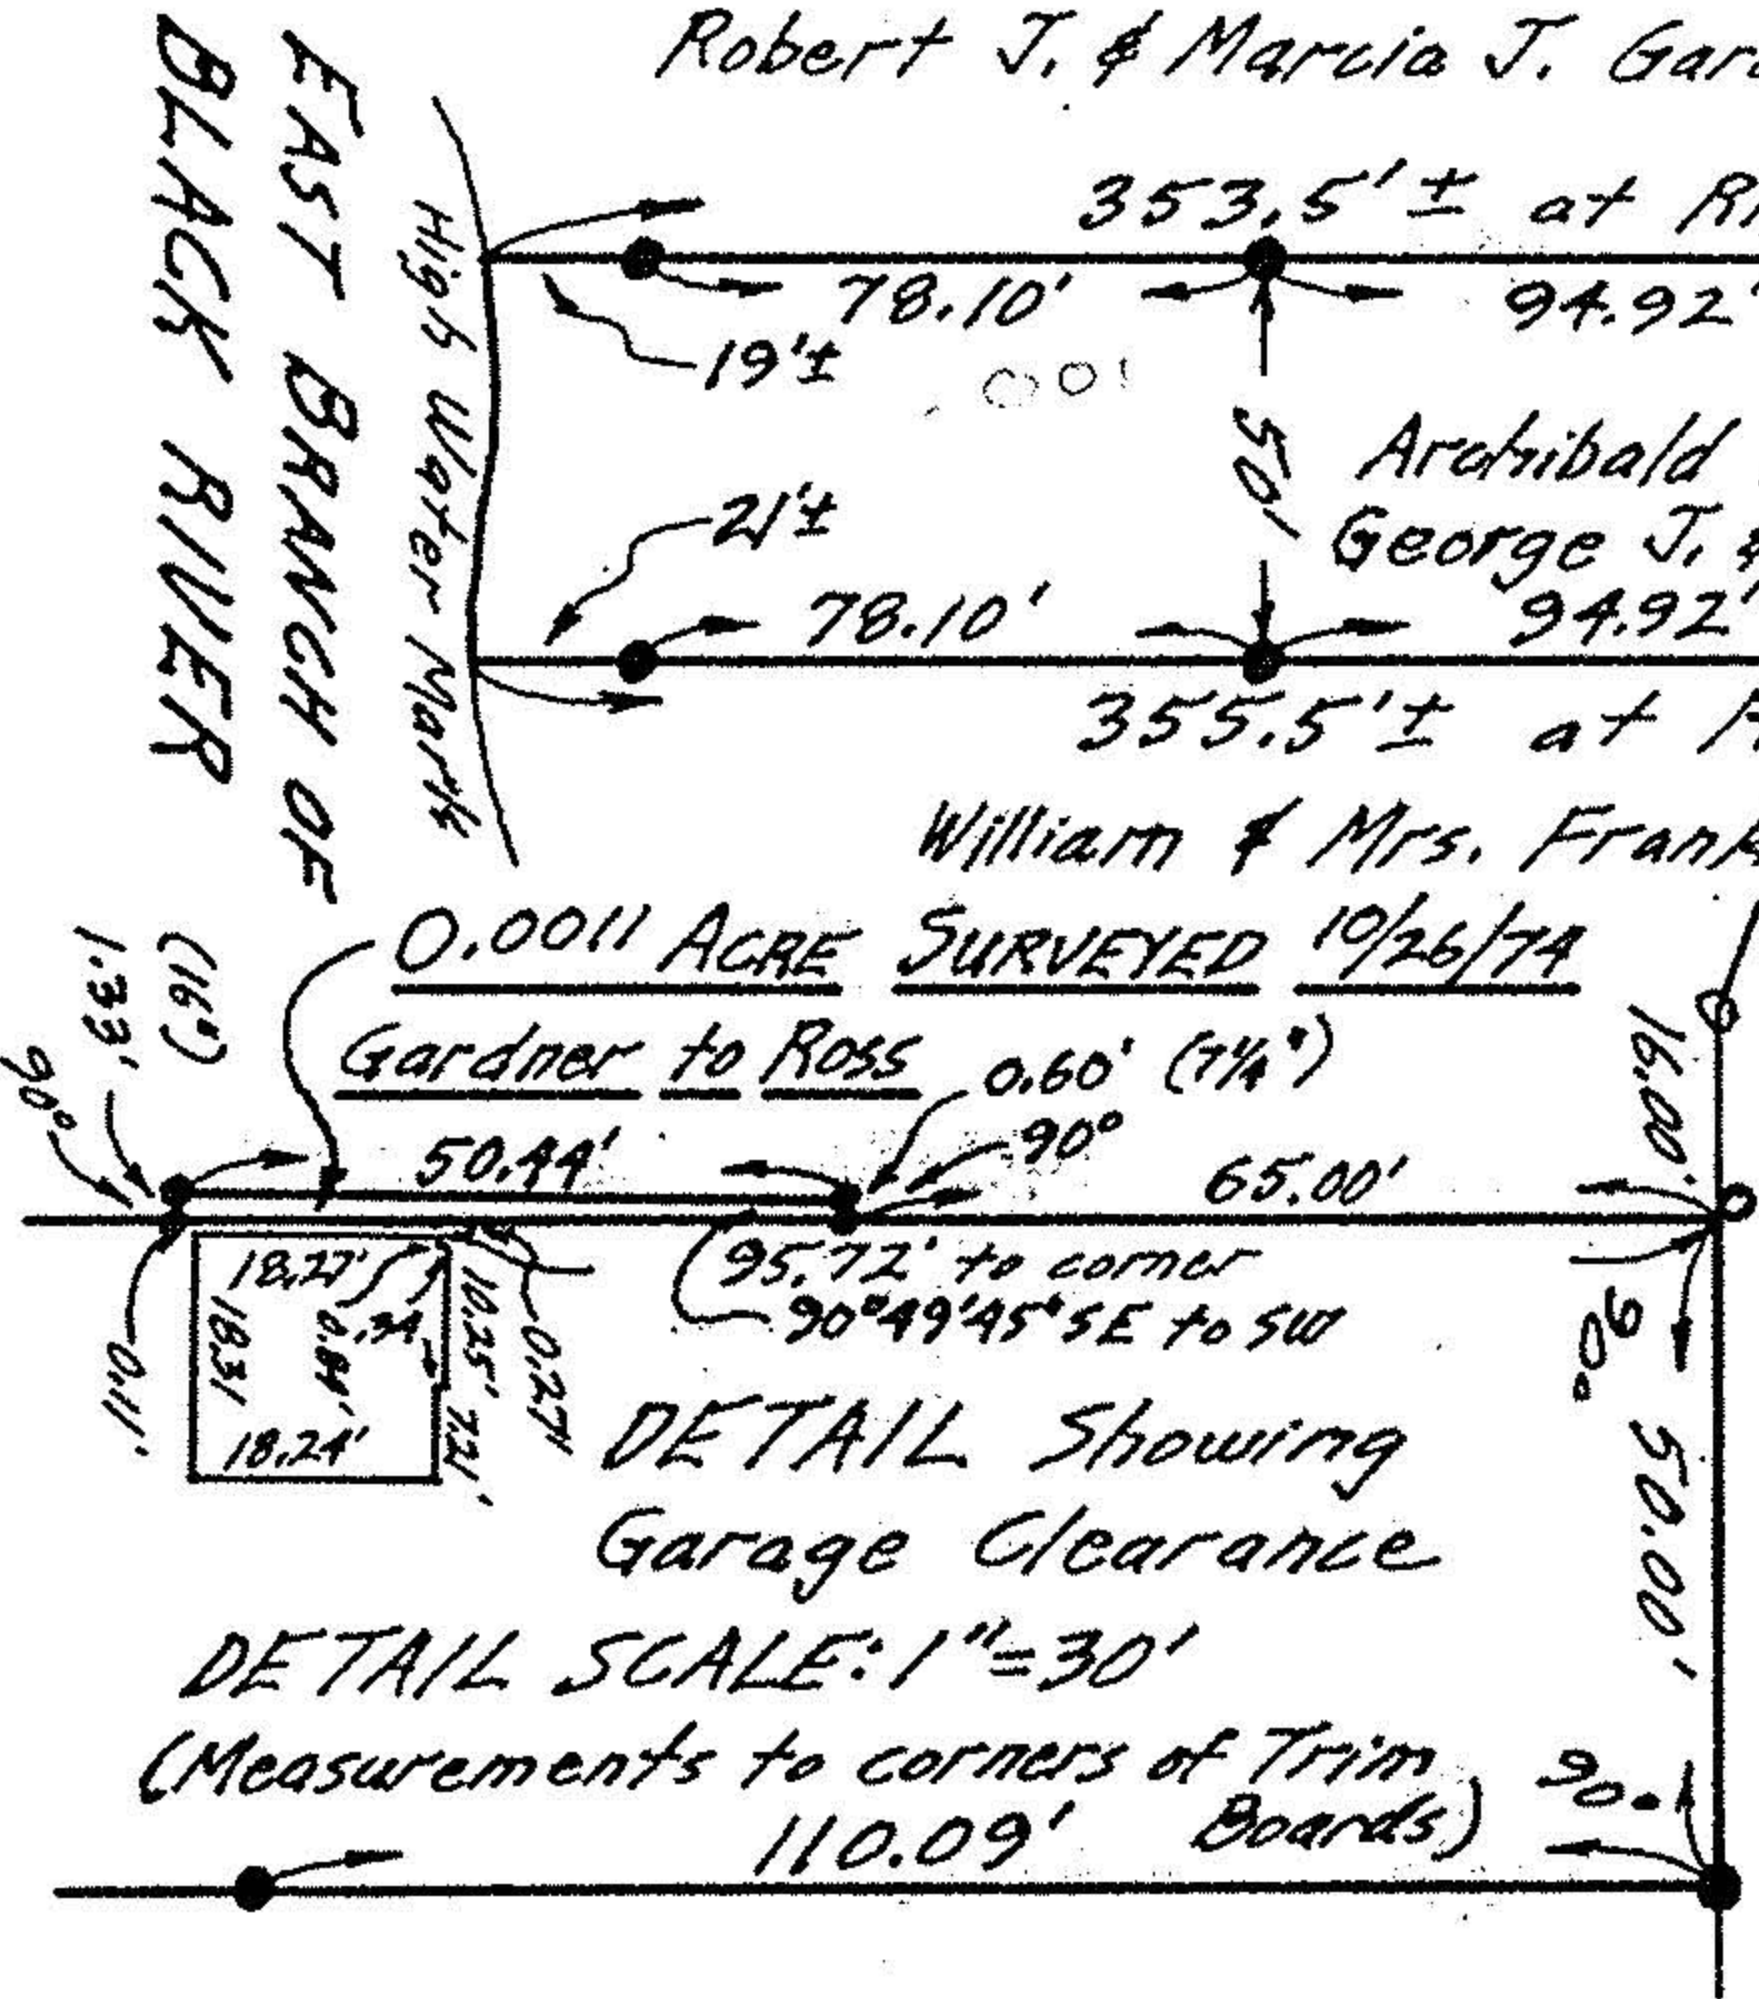 Robert J. & Marcia J.
EAST BRANCH OF
BLACK RIVER
High Water Mark
353.5'± at
78.10'
94.92'
19'±
50'
Archibald
George J. &
21'±
78.10'
94.92'
355.5'± at
William & Mrs.
0.0011 ACRE SURVEYED 10/26/74
Gardner to Ross
(16")
1.33'
90°
0.60' (7¼")
90°
50.44'
65.00'
16.00'
95.72' to corner
90°49'45" SE to SW
18.27'
18.31
0.84'
18.24'
10.25'
7.21'
0.27'
0.11'
90°
50.00'
DETAIL Showing
Garage Clearance
DETAIL SCALE: 1"=30'
(Measurements to corners of Trim
Boards)
110.09'
90°